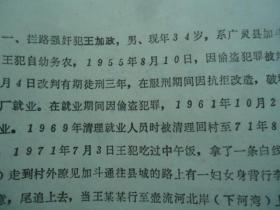 一、拦路强奸犯王加政，男、现年34岁，系广灵县加斗
王犯自幼务农，1955年8月10日，因偷盗犯罪被
月4日改判有期徒刑三年，在服刑期间因抗拒改造，被
厂就业。在就业期间因偷盗犯罪，1961年10月2
业。1969年清理就业人员时被清理回村至71年8
1971年7月3日王犯吃过中午饭，拿了一条白线
）走到村外瞭见加斗通往县城的路上有一妇女身背行李
意，尾追上去，当王某某行至壶流河北岸（下河湾）